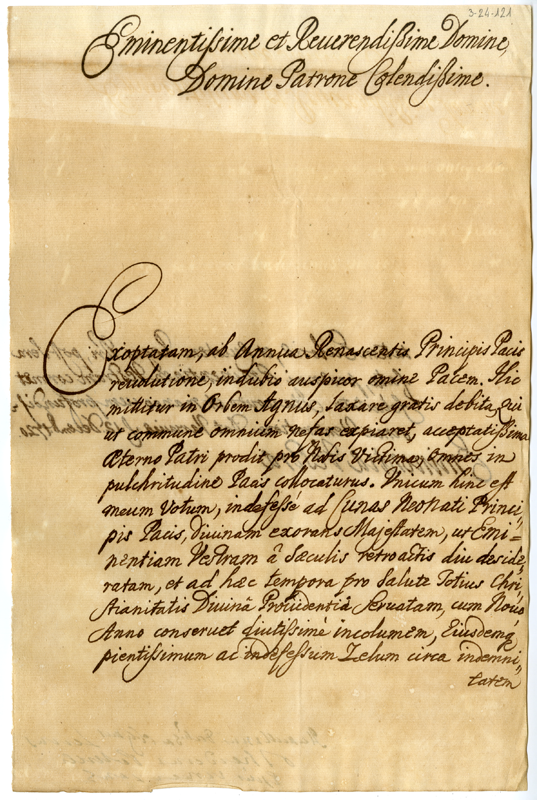 3-24-121
Eminentissime et Reuerendissime Domine,
Domine Patrone Colendissime.
Exoptatam, ab Annua Renascentis Principis Pacis
reuolutione, indubio auspicor omine Pacem. Hic
mittitur in Orbem Agnus, laxare gratis debita, qui
ut commune omnium nefas expiaret, acceptatissima
Æterno Patri prodit pro Nobis Victima, omnes in
pulchritudine Pacis collocaturus. Unicum hinc est
meum Votum, indefessè ad Cunas Neonati Princi,,
pis Pacis, Diuinam exorans Majestatem, ut Emi,,
nentiam Vestram â Sæculis retroactis diu deside,,
ratam, et ad hæc tempora pro Salute Totius Chri,,
stianitatis Diuinâ Prouidentiâ seruatam, cum Nouo
Anno conseruet diutissimè incolumem, Eiusdemq
pientissimum ac indefessum Zelum circa indemni,,
tatem